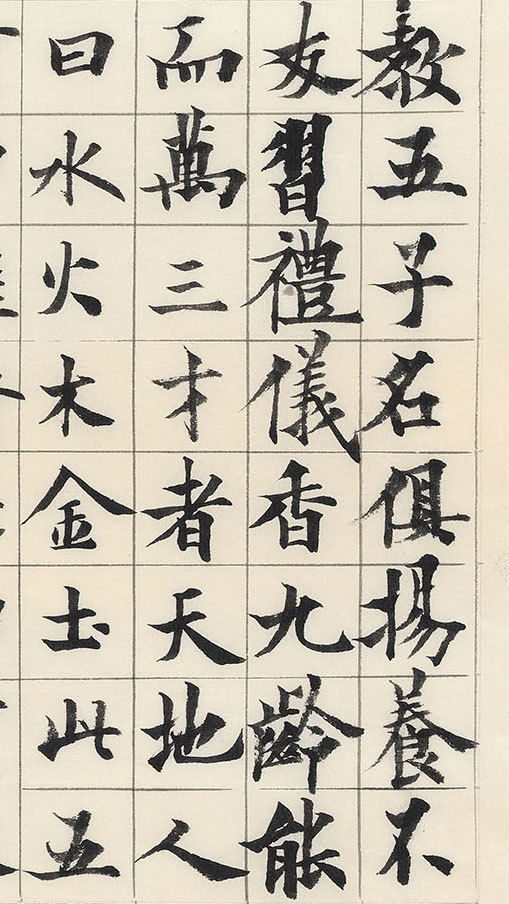 教五子名俱揚養不
友習禮儀香九齡能
而萬三才者天地人
曰水火木金土此五